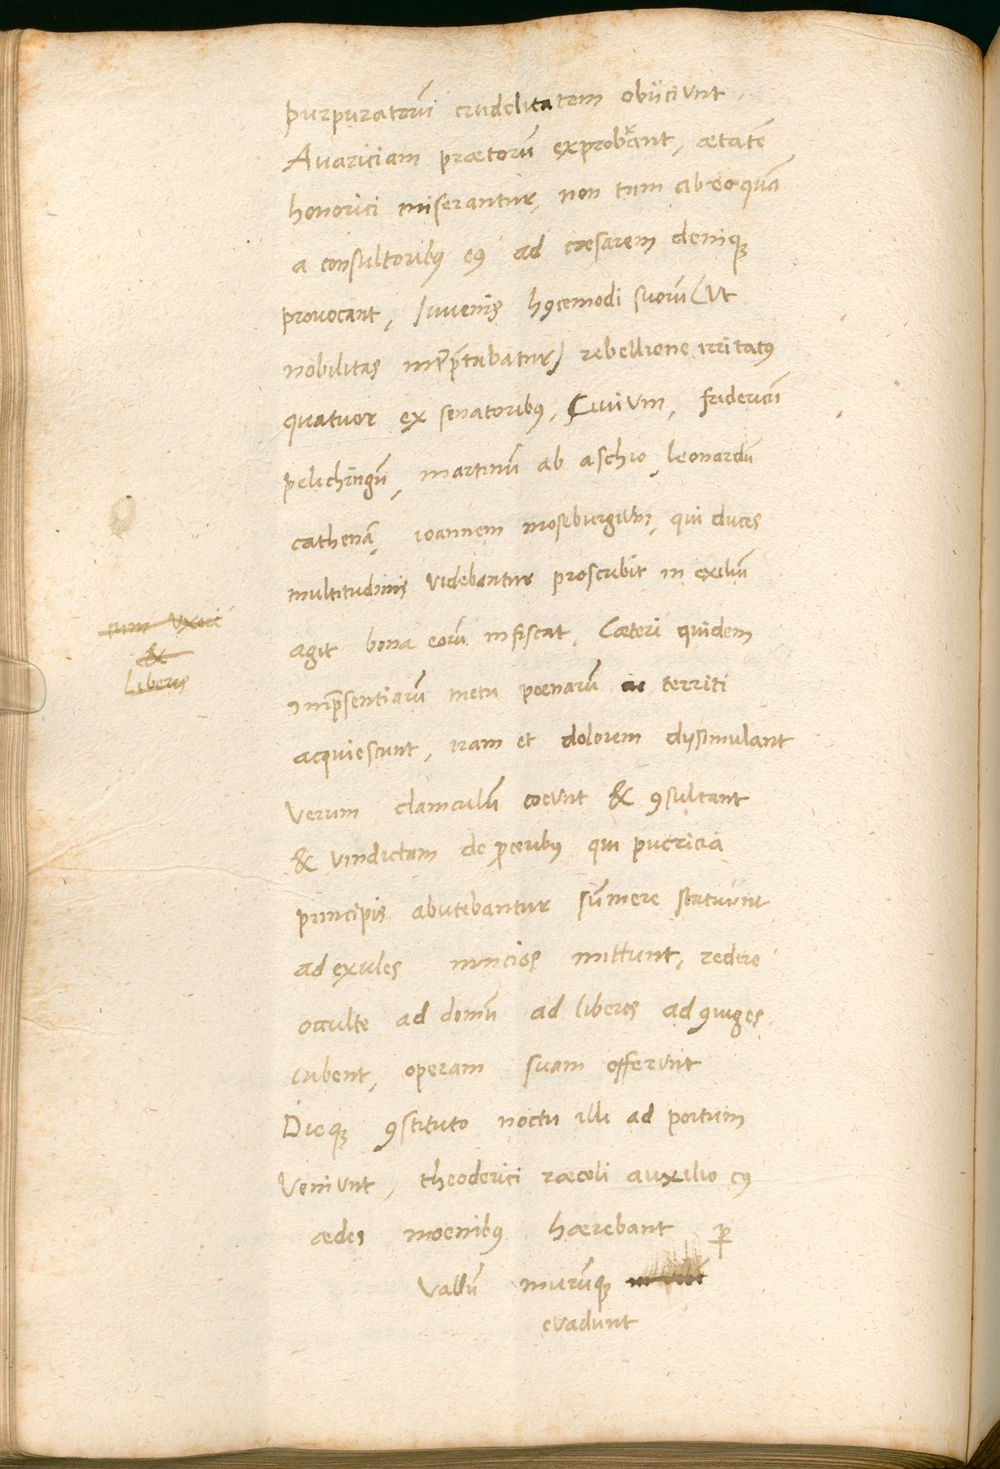 purpuratorū crudelitatem obÿciunt
Avariciam prætorū exprobrant, ætatē
honorici miserantur, non tum ab eo quā
a consultoribꝰ eꝰ ad cæsarem deniqꝫ
provocant, Iuvenis hꝰcemodi suorū (ut
nobilitas īterp̄tabatur) rebellione irritatꝰ
quatuor ex senatoribꝰ, Civium, fridericū
pelichīgū, martinū ab aschio, leonardū
cathenā, ioannem moseburgium, qui duces
multitudinis videbantur proscribit in exiliū
agit bona eorū infiscat. Cæteri quidem
cum uxore
&
Liberis
Imp̄sentiarū metu poenarū ac territi
acquiescunt, iram et dolorem dyssimulant
verum clamculū coeunt & ꝯsultant
& vindictam de ꝓceribꝰ qui puericia
principis abutebantur sūmere statuunt
ad exules nuncios mittunt, redire
occulte ad domū ad liberos ad ꝯiuges
iubent, operam suam offerunt
Dieqꝫ ꝯstituto noctu illi ad portum
veniunt, theoderici ræcoli auxilio cꝰ
ædes moenibꝰ hærebant ꝑ
vallū murūqꝫ in urbē
evadunt